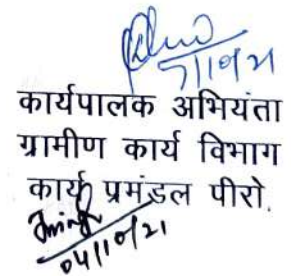 7/10/21
कार्यपालक अभियंता
ग्रामीण कार्य विभाग
कार्य प्रमंडल पीरो.
04/10/21